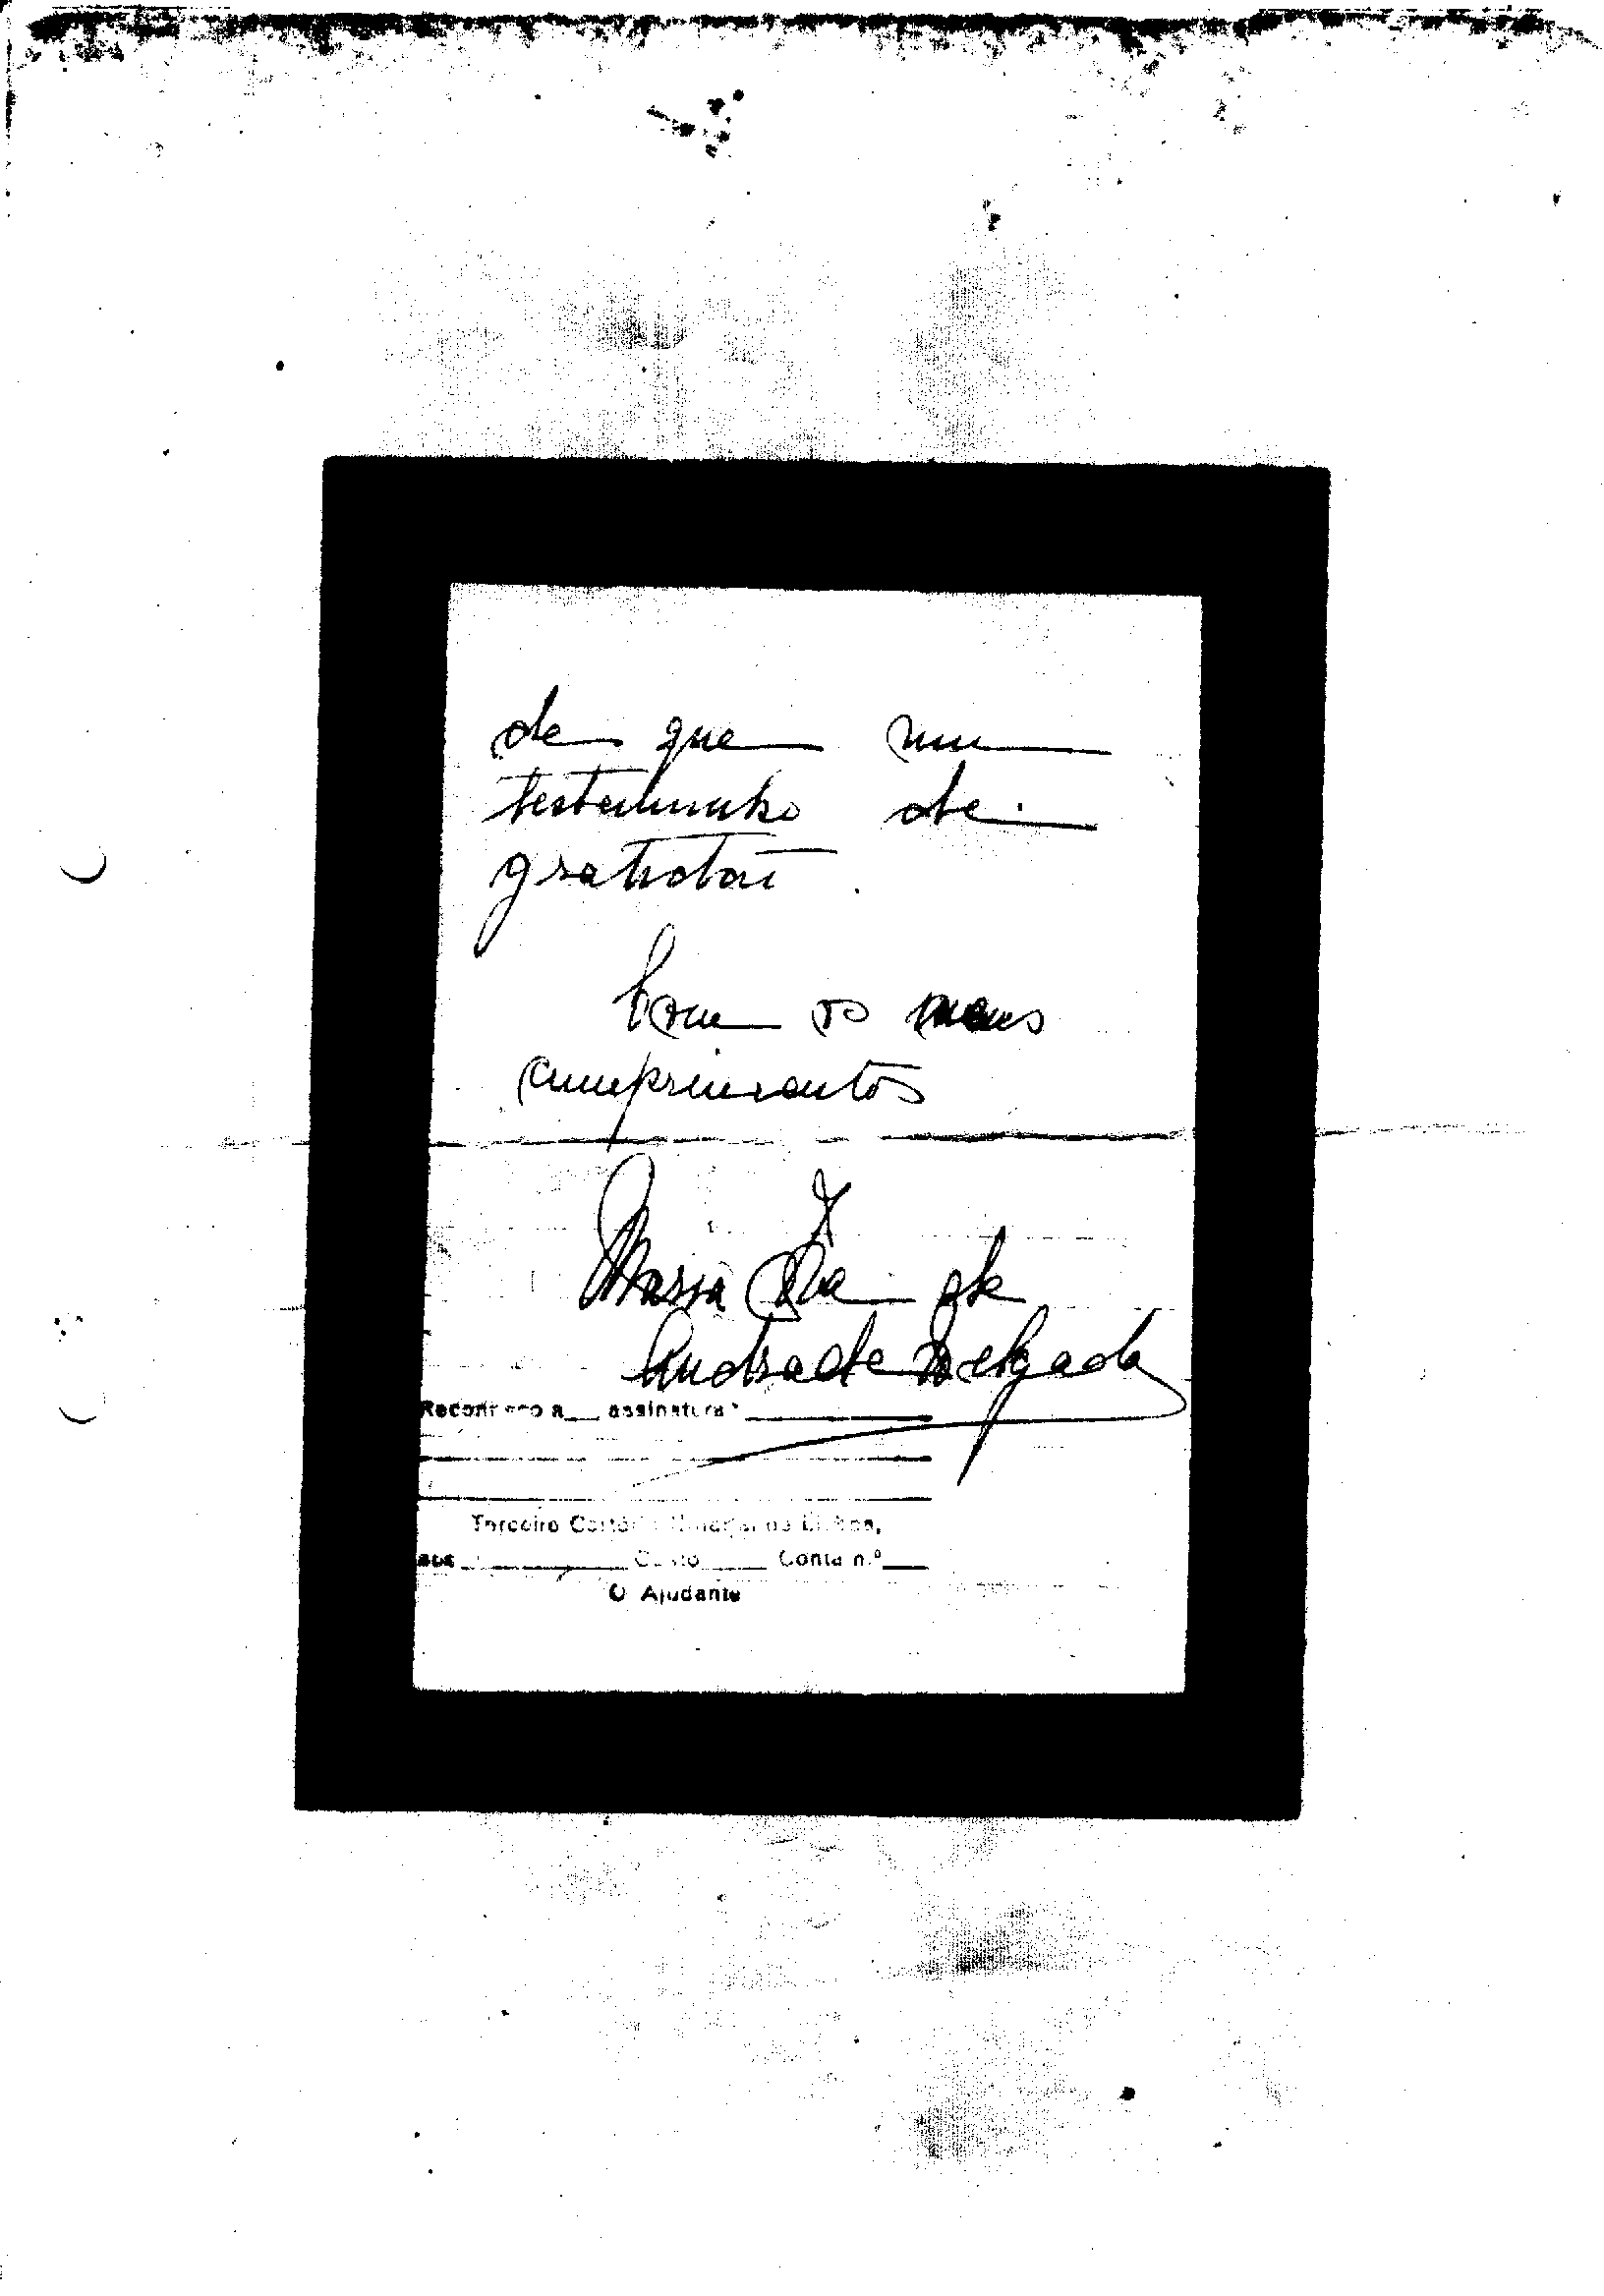 de que um
testemunho de
gratidão
Com os meus
cumprimentos
Maria de
Andrade Delgado
Reconheço a___ assinatura
Terceiro Cartório Notarial de Lisboa,
aos ______ Custo ____ Conta n.º___
O Ajudante